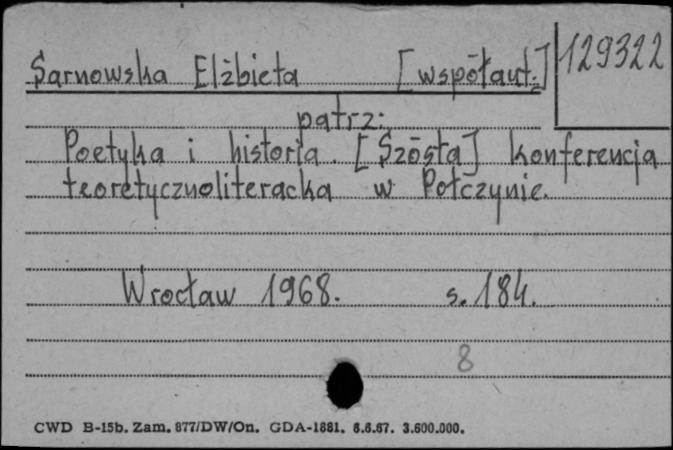 Sarnowska Elżbieta [współaut.] 129322
patrz:
Poetyka i historia. [Szósta] konferencja
teoretycznoliteracka w Połczynie.
Wrocław 1968. s. 184.
8
CWD B-15b. Zam. 877/DW/On. GDA-1881. 6.6.67. 3.600.000.